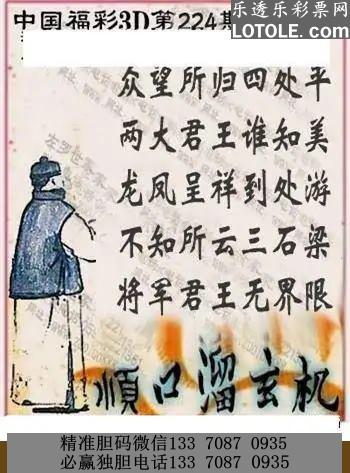 乐透乐彩票网
LOTOLE.COM
中国福彩3D第224期
众望所归四处平
两大君王谁知美
龙凤呈祥到处游
不知所云三石梁
将军君王无界限
順口溜玄机
精准胆码微信133 7087 0935
必赢独胆电话133 7087 0935